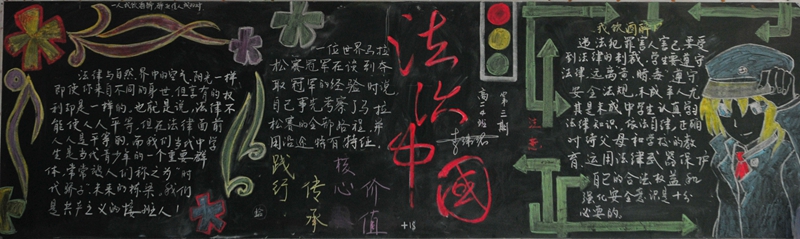 法律与自然界中的空气，阳光一样
即使你来自不同的身世，但享有的权
利却是一样的，也就是说，法律不
能使人人平等，但在法律面前
人人是平等的，而我们当代中学
生是当代青少年的一个重要群
体，常常被人们称之为"时
代骄子"未来的桥梁，我们
是共产主义的接班人！
一位世界马拉
松赛冠军在谈到夺
取冠军的经验时说
自己事先考察了马拉
松赛的全部路程，并
用沿途特有
践行
传承
核心
价值
法治中国
第三期
高二4班
+18
违法犯罪害人害己，要受
到法律的制裁，学生要遵守
法律，远离黄、赌、毒，遵守
安全法规，未成年人尤
其是未成中学生认真学
习法律知识，依法自律，正确
对待父母和学校的教
育，运用法律武器保护
自己的合法权益和
强化安全意识是十分
必要的。